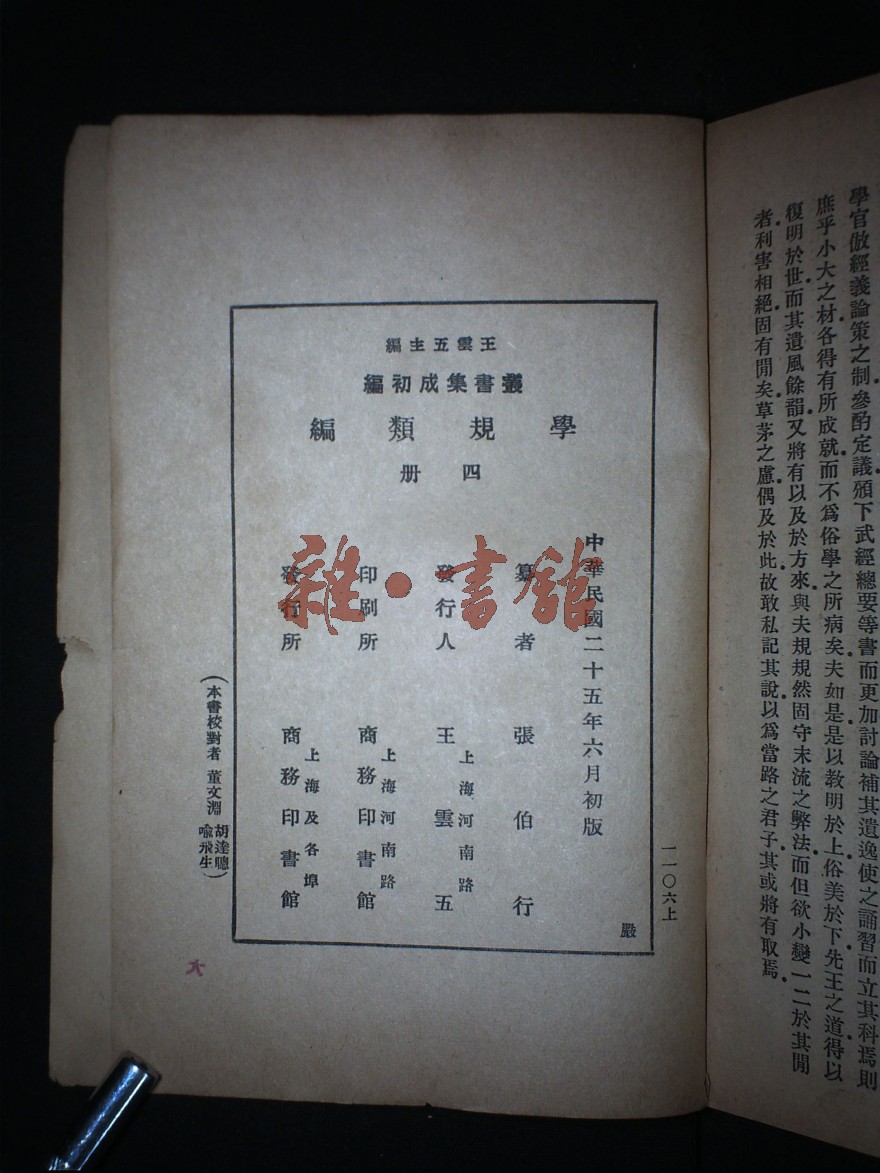 學官倣經義論策之制參酌定議頒下武經總要等書而更加討論補其遺逸使之誦習而立其科焉則
庶乎小大之材各得有所成就而不爲俗學之所病矣夫如是是以教明於上俗美於下先王之道得以
復明於世而其遺風餘韻又將有以及於方來與夫規規然固守末流之弊法而但欲小變一二於其閒
者利害相絕固有閒矣草茅之慮偶及於此故敢私記其說以爲當路之君子其或將有取焉
王雲五主編
叢書集成初編
學規類編
四册
中華民國二十五年六月初版
纂者 張伯行
發行人 王雲五
上海河南路
印刷所 商務印書館
上海河南路
發行所 商務印書館
上海及各埠
(本書校對者 董文淵 胡達聰 喻飛生)
一一〇六上
嚴
雜·書館
大